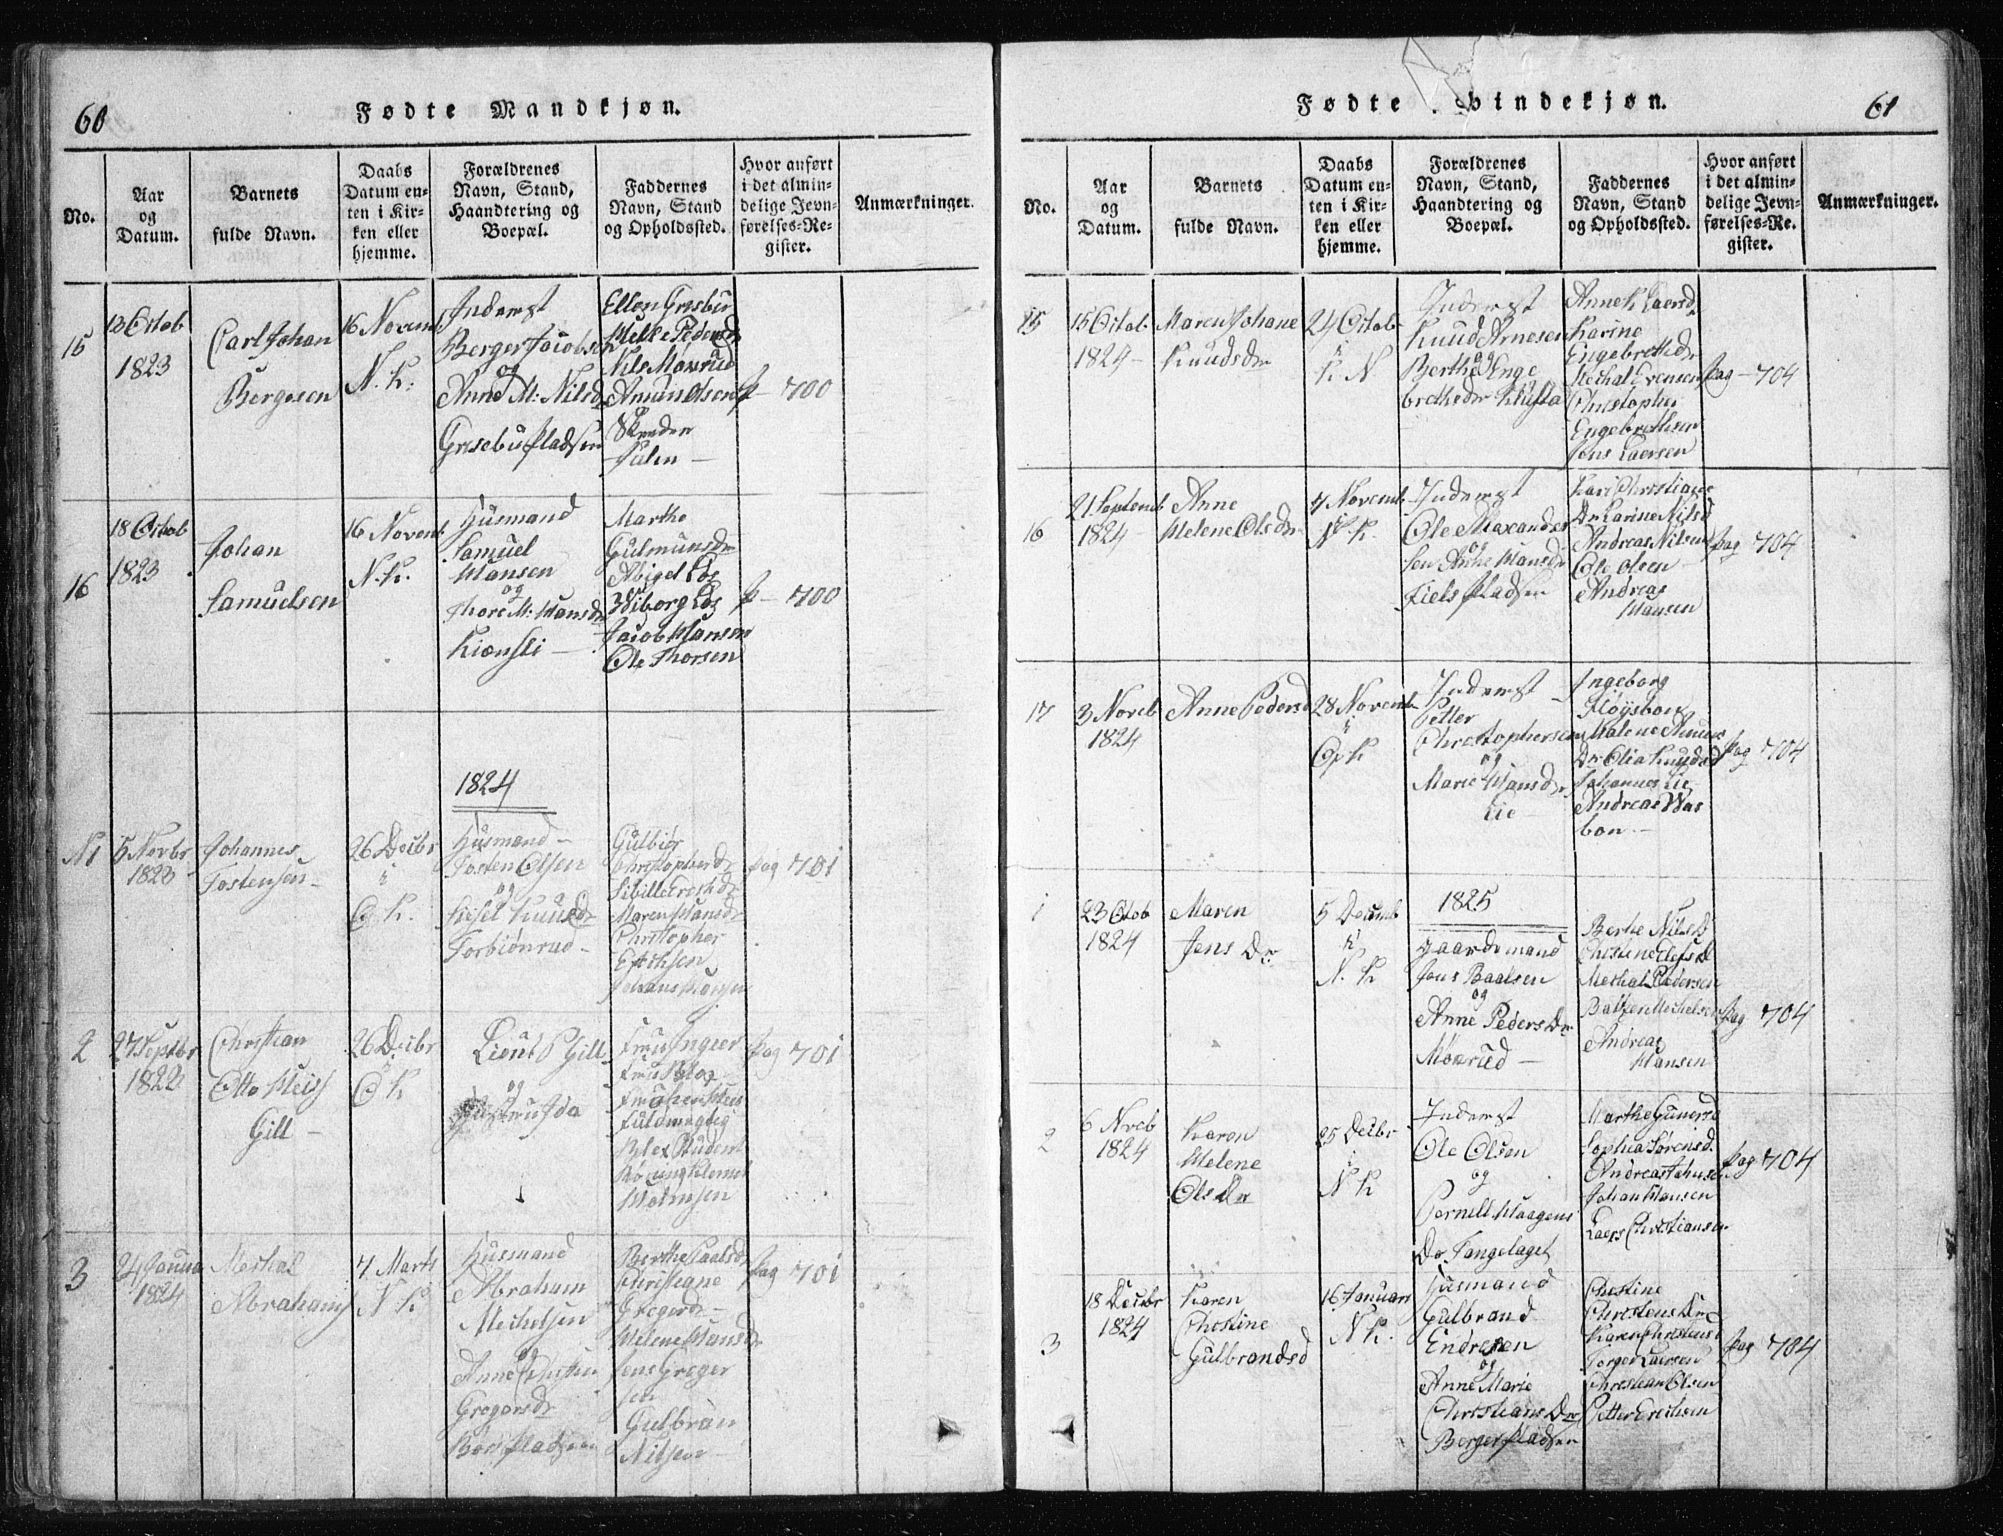 60
Fødte Mandkjøn.
No.
Aar
og
Datum.
Barnets
fulde Navn.
Daabs
Datum en-
ten i Kir-
ken eller
hjemme.
Forældrenes
Navn, Stand,
Haandtering og
Boepæl.
Faddernes
Navn, Stand
og Opholdssted.
Hvor anført
i det almin-
delige Jevn-
førelses-Re-
gister.
Anmærkninger.
15
13 Octob
1823
Carl Johan
Bergesen
16 Novem
N. K.
Inderst
Berger Jacobsen
og
Anne M: Nilsd
Grisebu Pladsen
Ellen Grisbu
Nils Monrud
Amun Olsen
p - 700
16
18 Octob
1823
Johan
Samuelsen
16 Novemb
N. K.
Husmand
Samuel
Hansen
og
Thore M: Hansdr
Kionsli
Marthe
Gulmunsdr
Abigel Løs
Wiborg Løs
Jacob Hansen
Ole Thorsen
p - 700
1824
N 1
5 Novbr
1823
Johannes
Tostensen
26 Decbr
i
O K.
Husmand
Tosten Olsen
og
Kisel Knusdr
Torbiønrud
Gulbiør
Christopherdr
Maren Hansdr
Christopher
pag 701
2
27 Septbr
1822
Christian
Otto Meis
Gill
26 Decbr
O K
Lieut P Gill
og
Fru Ingier
Fuldmægtig
Student
Holmsen
pag 701
3
24 Janua
1824
Mechal
Abrahams
7 Marts
N K
Husmand
Abraham
Mechelsen
og
Gregersdr
Berthe Paalsdr
Christiane
Gregersdr
Helene Hansdr
Jens Greger
sen
Gulbran
Nilsen
pag 701
Fødte vindekjøn.
61
No.
Aar
og
Datum.
Barnets
fulde Navn.
Daabs
Datum en-
ten i Kir-
ken eller
hjemme.
Forældrenes
Navn, Stand,
Haandtering og
Boepæl.
Faddernes
Navn, Stand
og Opholdssted.
Hvor anført
i det almin-
delige Jevn-
førelses-Re-
gister.
Anmærkninger.
15
15 Octob
1824
Maren Johane
Knudsdr
24 Octob
i
K N
Inderst
Knud Arnesen
og
Berthe Enge
brethsdr
Karine
Engebrethsdr
Mechal Evensen
Christopher
Engebrethsen
Jens Laersen
pag - 704
16
21 Septemb
1824
Anne
Helene Olsdr
7 Novemb
N. K.
Inderst
Ole Alexander
og
sen Anne Hansdr
Fiels Pladsen
Kari Christians
Dr Karine Nilsd
Andreas Nilsen
Ole Olsen
Andreas
Hansen
pag 704
17
3 Noveb
1824
Anne Pedersd
28 Novemb
i
O K
Inderst
Petter
Christophersen
og
Marie Hansdr
Lie
Ingeborg
Malene Amuns
Dr Olia Knudsd
Johannes Lie
Andreas Was
bon
pag 704
1825
1
23 Octob
1824
Maren
Jens Dr
5 Decemb
i
N. K
gaardemand
Jens Paalsen
og
Anne Peders Dr
Monrud
Berte Nils D
Mechal Pedersen
Baltzer Mechelsen
Andreas
Hansen
pag 704
2
6 Noveb
1824
Karen
Helene
Ols Dr
25 Decbr
i
N K
Inderst
Ole Olsen
og
Pernell Haagens
Dr Tangelaget
Marthe Gunersd
Sophia Sørensd
Johan Hansen
Laers Christiansen
pag 704
3
18 Decbr
1824
Karen
Chrestine
Gulbrandsd
16 Januari
N K.
Husmand
Gulbrand
Endresen
og
Anne Marie
Christians Dr
Berger Pladsen
Chrestine
Christens Dr
Karen Christensd
Torger Laersen
Christian Olsen
Petter Erichsen
pag 704